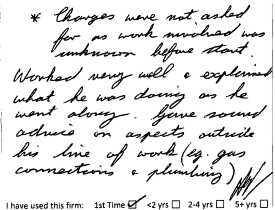 * Charges were not asked
for as work involved was
unknown before start.
Worked very well & explained
what he was doing as he
went along. Gave sound
advice on aspects outside
his line of work (eg. gas
connections & plumbing)
I have used this firm: 1st Time ☑ <2 yrs ☐ 2-4 yrs ☐ 5+ yrs ☐